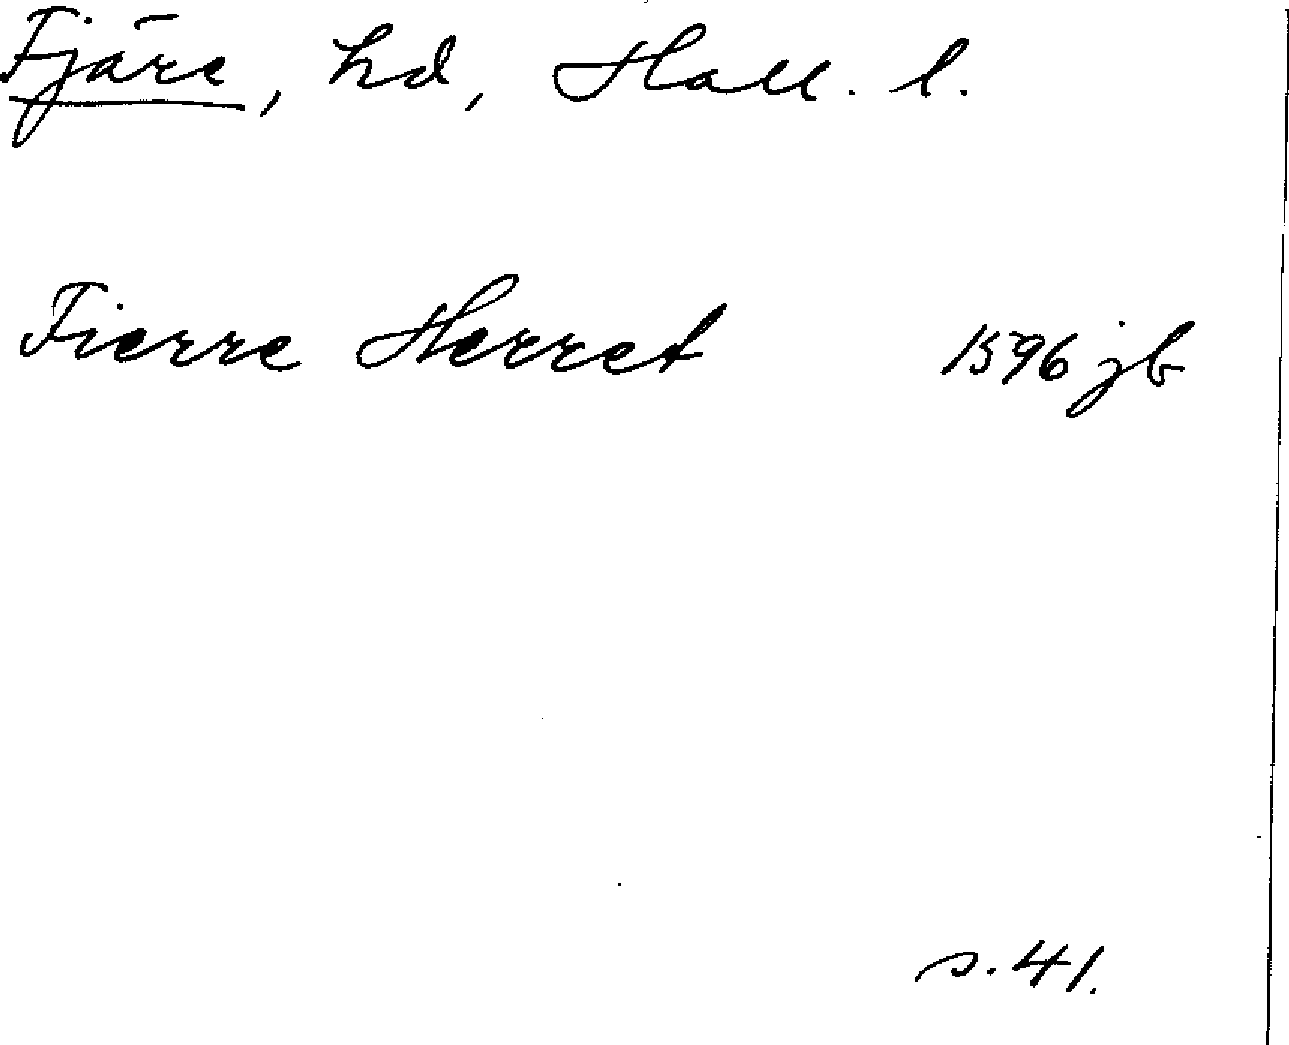 Fjäre, hd, Hall. l.
Fierre Herret 1596 jb
s. 41.